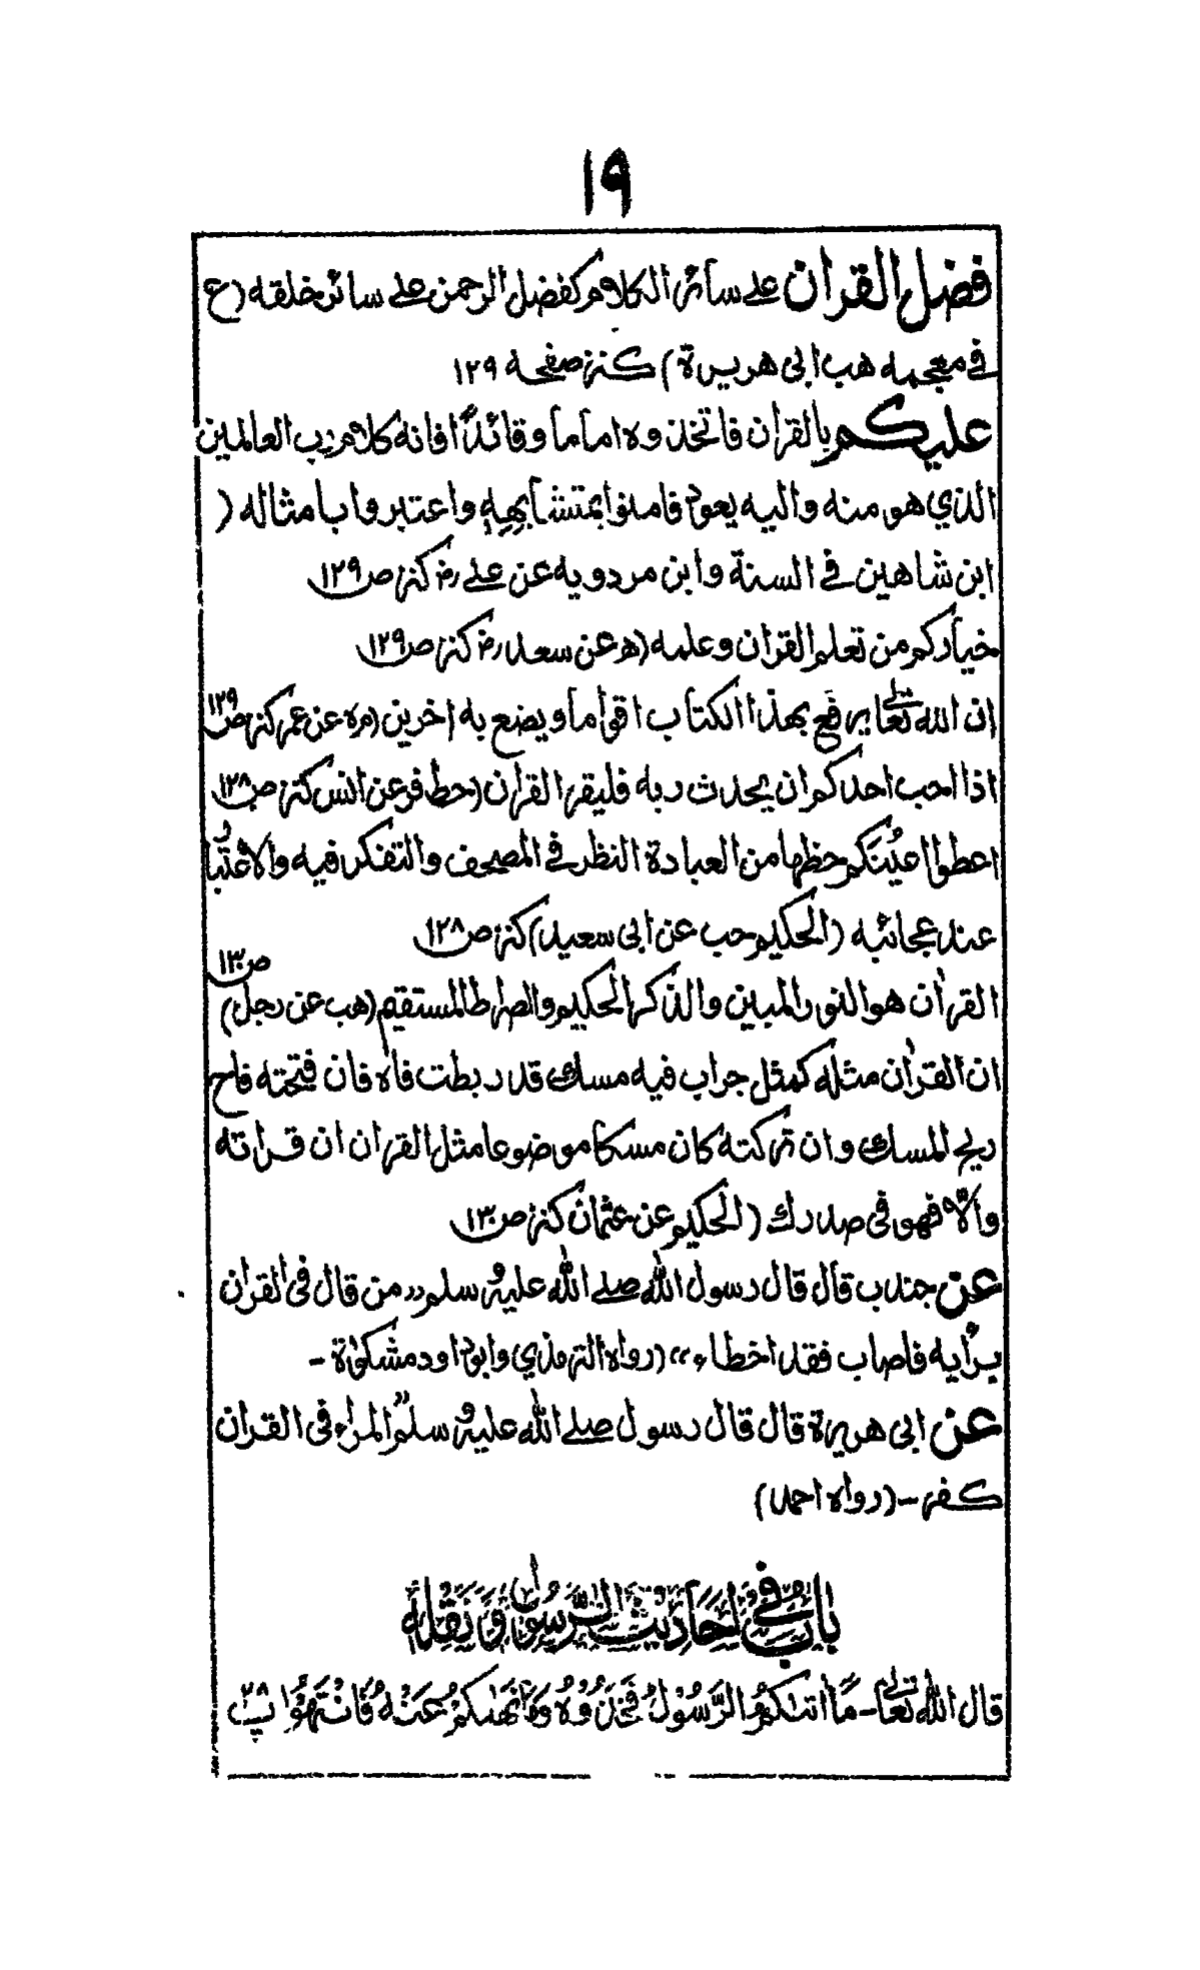 ١٩
فضل القرآن على سائر الكلام كفضل الرحمن على سائر خلقه (ع
في معجمه هب ابى هريرة) كنز صفحه ١٢٩
عليكم بالقرآن فاتخذوه اماما وقائدًا فانه كلام رب العالمين
الذي هو منه واليه يعود فامنوا بمتشابهه واعتبروا بامثاله (
ابن شاهين في السنة وابن مردويه عن على رض كنز ص١٢٩
خياركم من تعلم القرآن وعلمه (ه عن سعد رض كنز ص١٢٩
ان الله تعالى يرفع بهذا الكتاب اقواما ويضع به اخرين (م ه عن عمر كنز ص١٢٩
اذا احب احدكم ان يحدث ربه فليقرا القرآن (خط فر عن انس كنز ص١٢٨
اعطوا اعينكم حظها من العبادة النظر في المصحف والتفكر فيه والاعتبار
عند عجائبه (الحكيم حب عن ابى سعيد) كنز ص١٢٨
القرآن هو النور المبين والذكر الحكيم والصراط المستقيم (هب عن رجل) ص١٣٠
ان القرآن مثله كمثل جراب فيه مسك قد ربطت فاه فان فتحته فاح
ريح المسك وان تركته كان مسكا موضوعا مثل القرآن ان قراته
والّا فهو فى صدرك (الحكيم عن عثمان كنز ص١٣٠
عن جندب قال قال رسول الله صلے الله عليه وسلم "من قال فى القرآن
برأيه فاصاب فقد اخطاء" (رواه الترمذي وابوداود مشكوٰة -
عن ابى هريرة قال قال رسول صلے الله عليه وسلم "المراء فى القرآن
كفر - (رواه احمد)
بابٌ في اَحَاديثِ الرَّسُولِ وَنَقْلِهٖ
قال الله تعالى - مَا اتٰىكُمُ الرَّسُوْلُ فَخُذُوْهُ وَمَا نَهٰىكُمْ عَنْهُ فَانْتَهُوْا پ٢٨